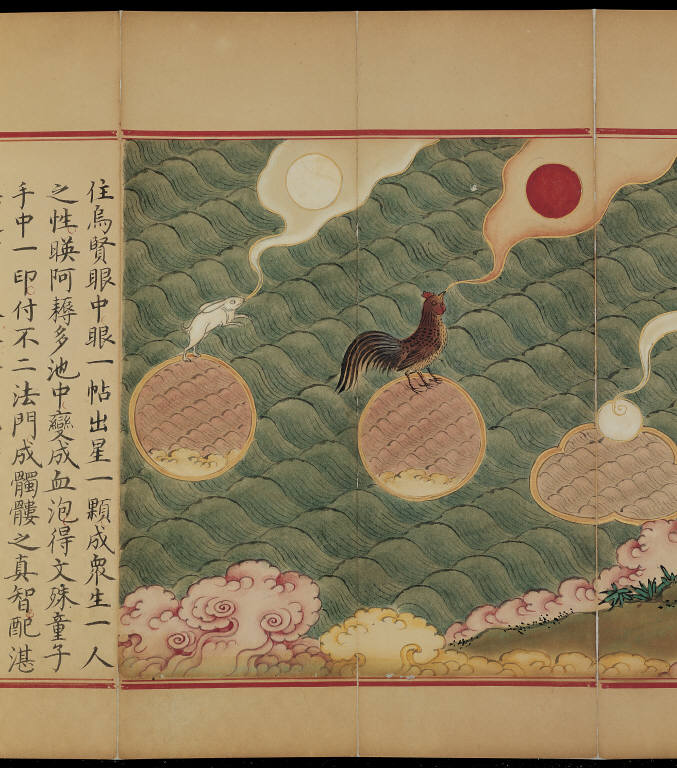 住烏賢眼中眼一帖出星一顆成衆生一人
之性暎阿耨多池中變成血泡得文殊童子
手中一印付不二法門成髑髏之真智配湛